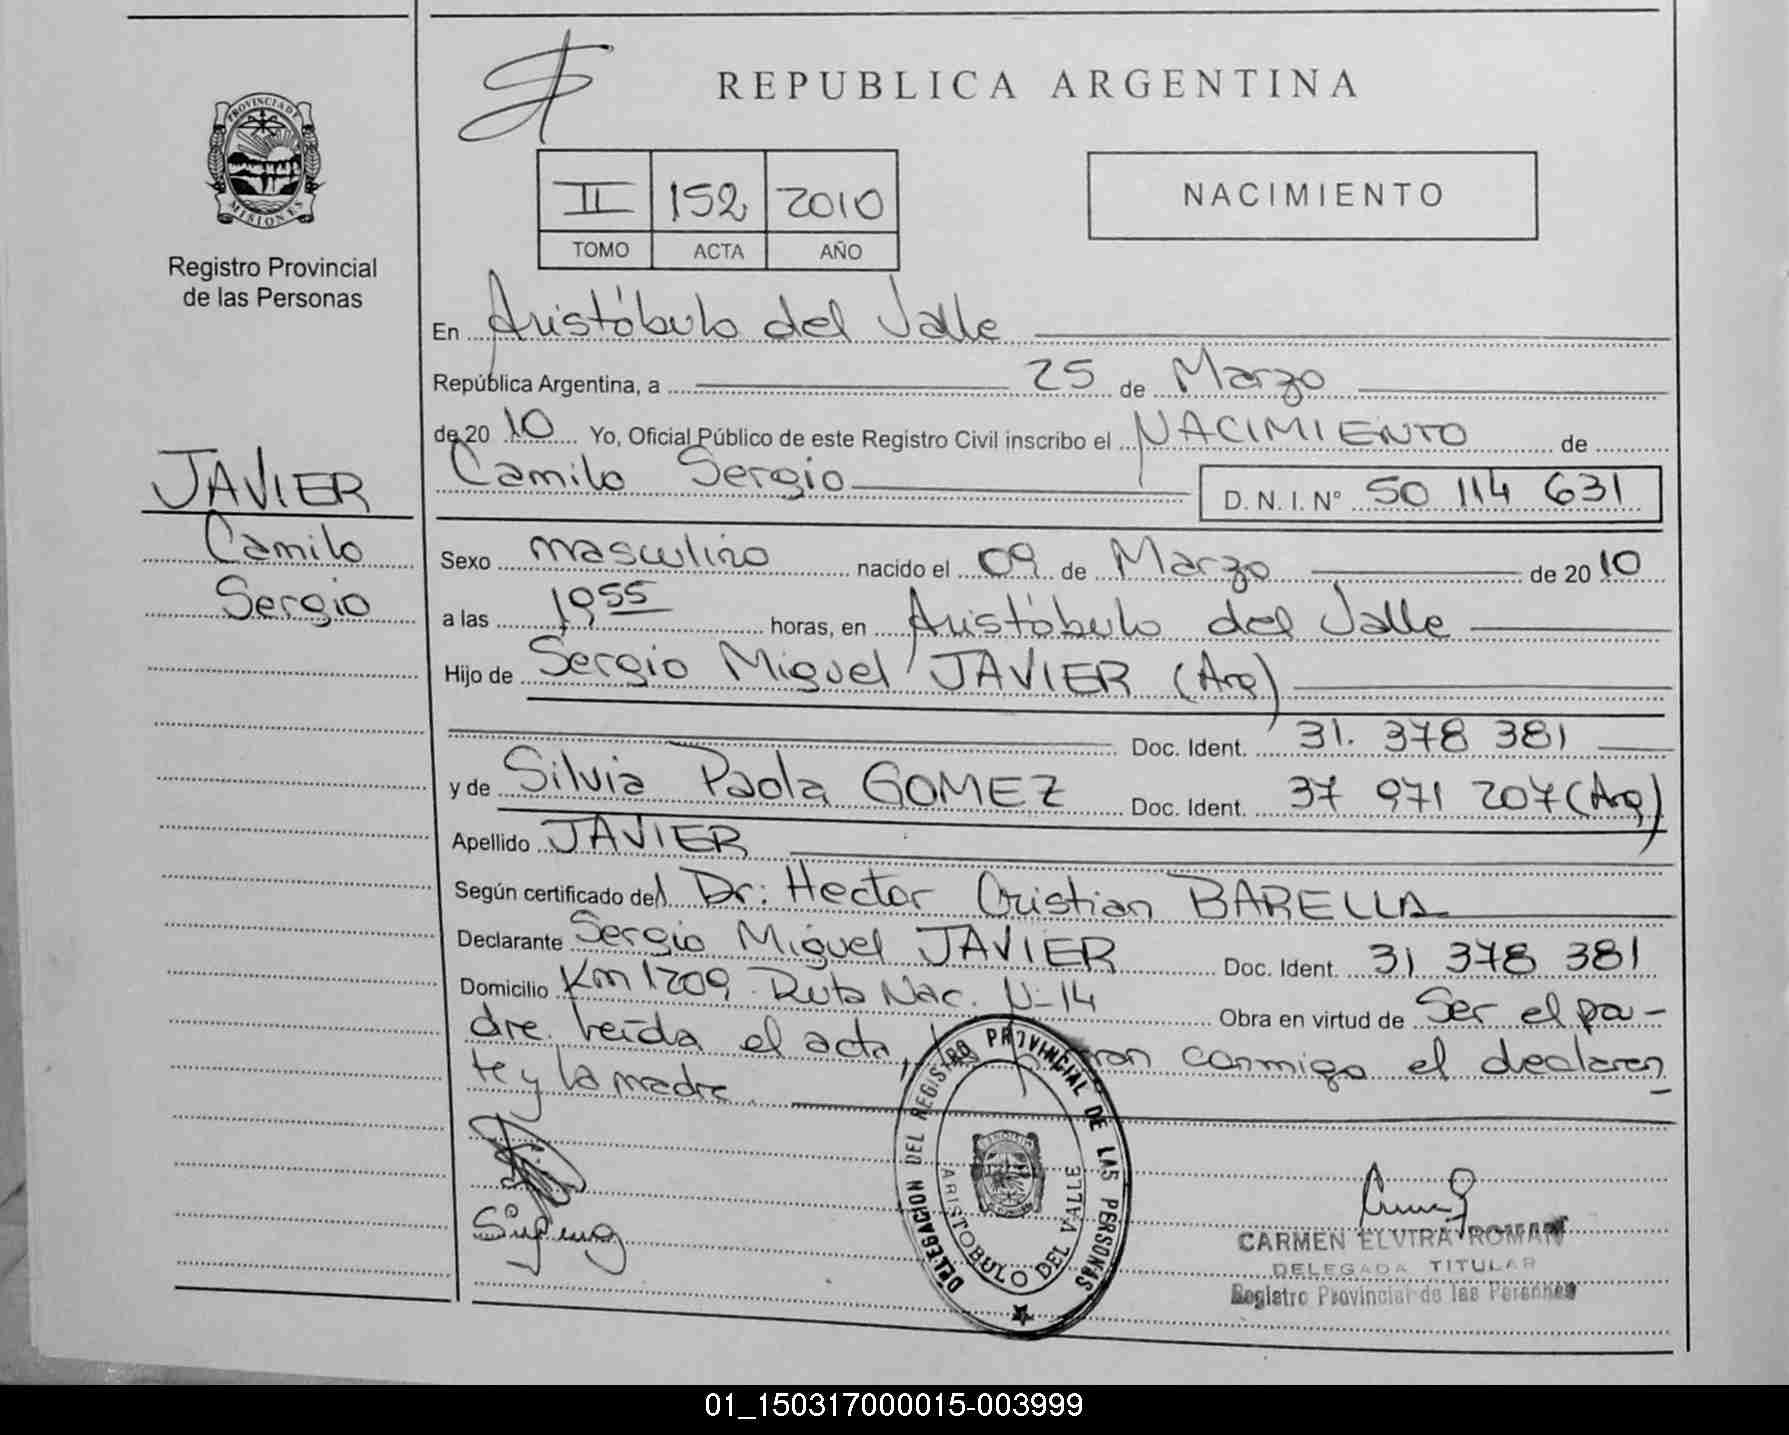 PROVINCIA DE
MISIONES
Registro Provincial
de las Personas
JAVIER
Camilo
Sergio
REPUBLICA ARGENTINA
II 152 2010
TOMO ACTA AÑO
NACIMIENTO
En Aristóbulo del Valle
República Argentina, a 25 de Marzo
de 20 10 Yo, Oficial Público de este Registro Civil inscribo el NACIMIENTO de
Camilo Sergio D. N. I. Nº 50 114 631
Sexo masculino nacido el 09 de Marzo de 20 10
a las 19 55 horas, en Aristóbulo del Valle
Hijo de Sergio Miguel JAVIER (Arg)
Doc. Ident. 31. 378 381
y de Silvia Paola GOMEZ Doc. Ident. 37 971 207 (Arg)
Apellido JAVIER
Según certificado del Dr: Hector Cristian BARELLA
Declarante Sergio Miguel JAVIER Doc. Ident. 31 378 381
Domicilio Km 1209 Ruta Nac. N-14 Obra en virtud de Ser el pa-
dre. leída el acta, conmigo el declaran
te y la madre.
DELEGACION DEL REGISTRO PROVINCIAL DE LAS PERSONAS
ARISTOBULO DEL VALLE
CARMEN ELVIRA ROMAN
DELEGADA TITULAR
Registro Provincial de las Personas
01_150317000015-003999